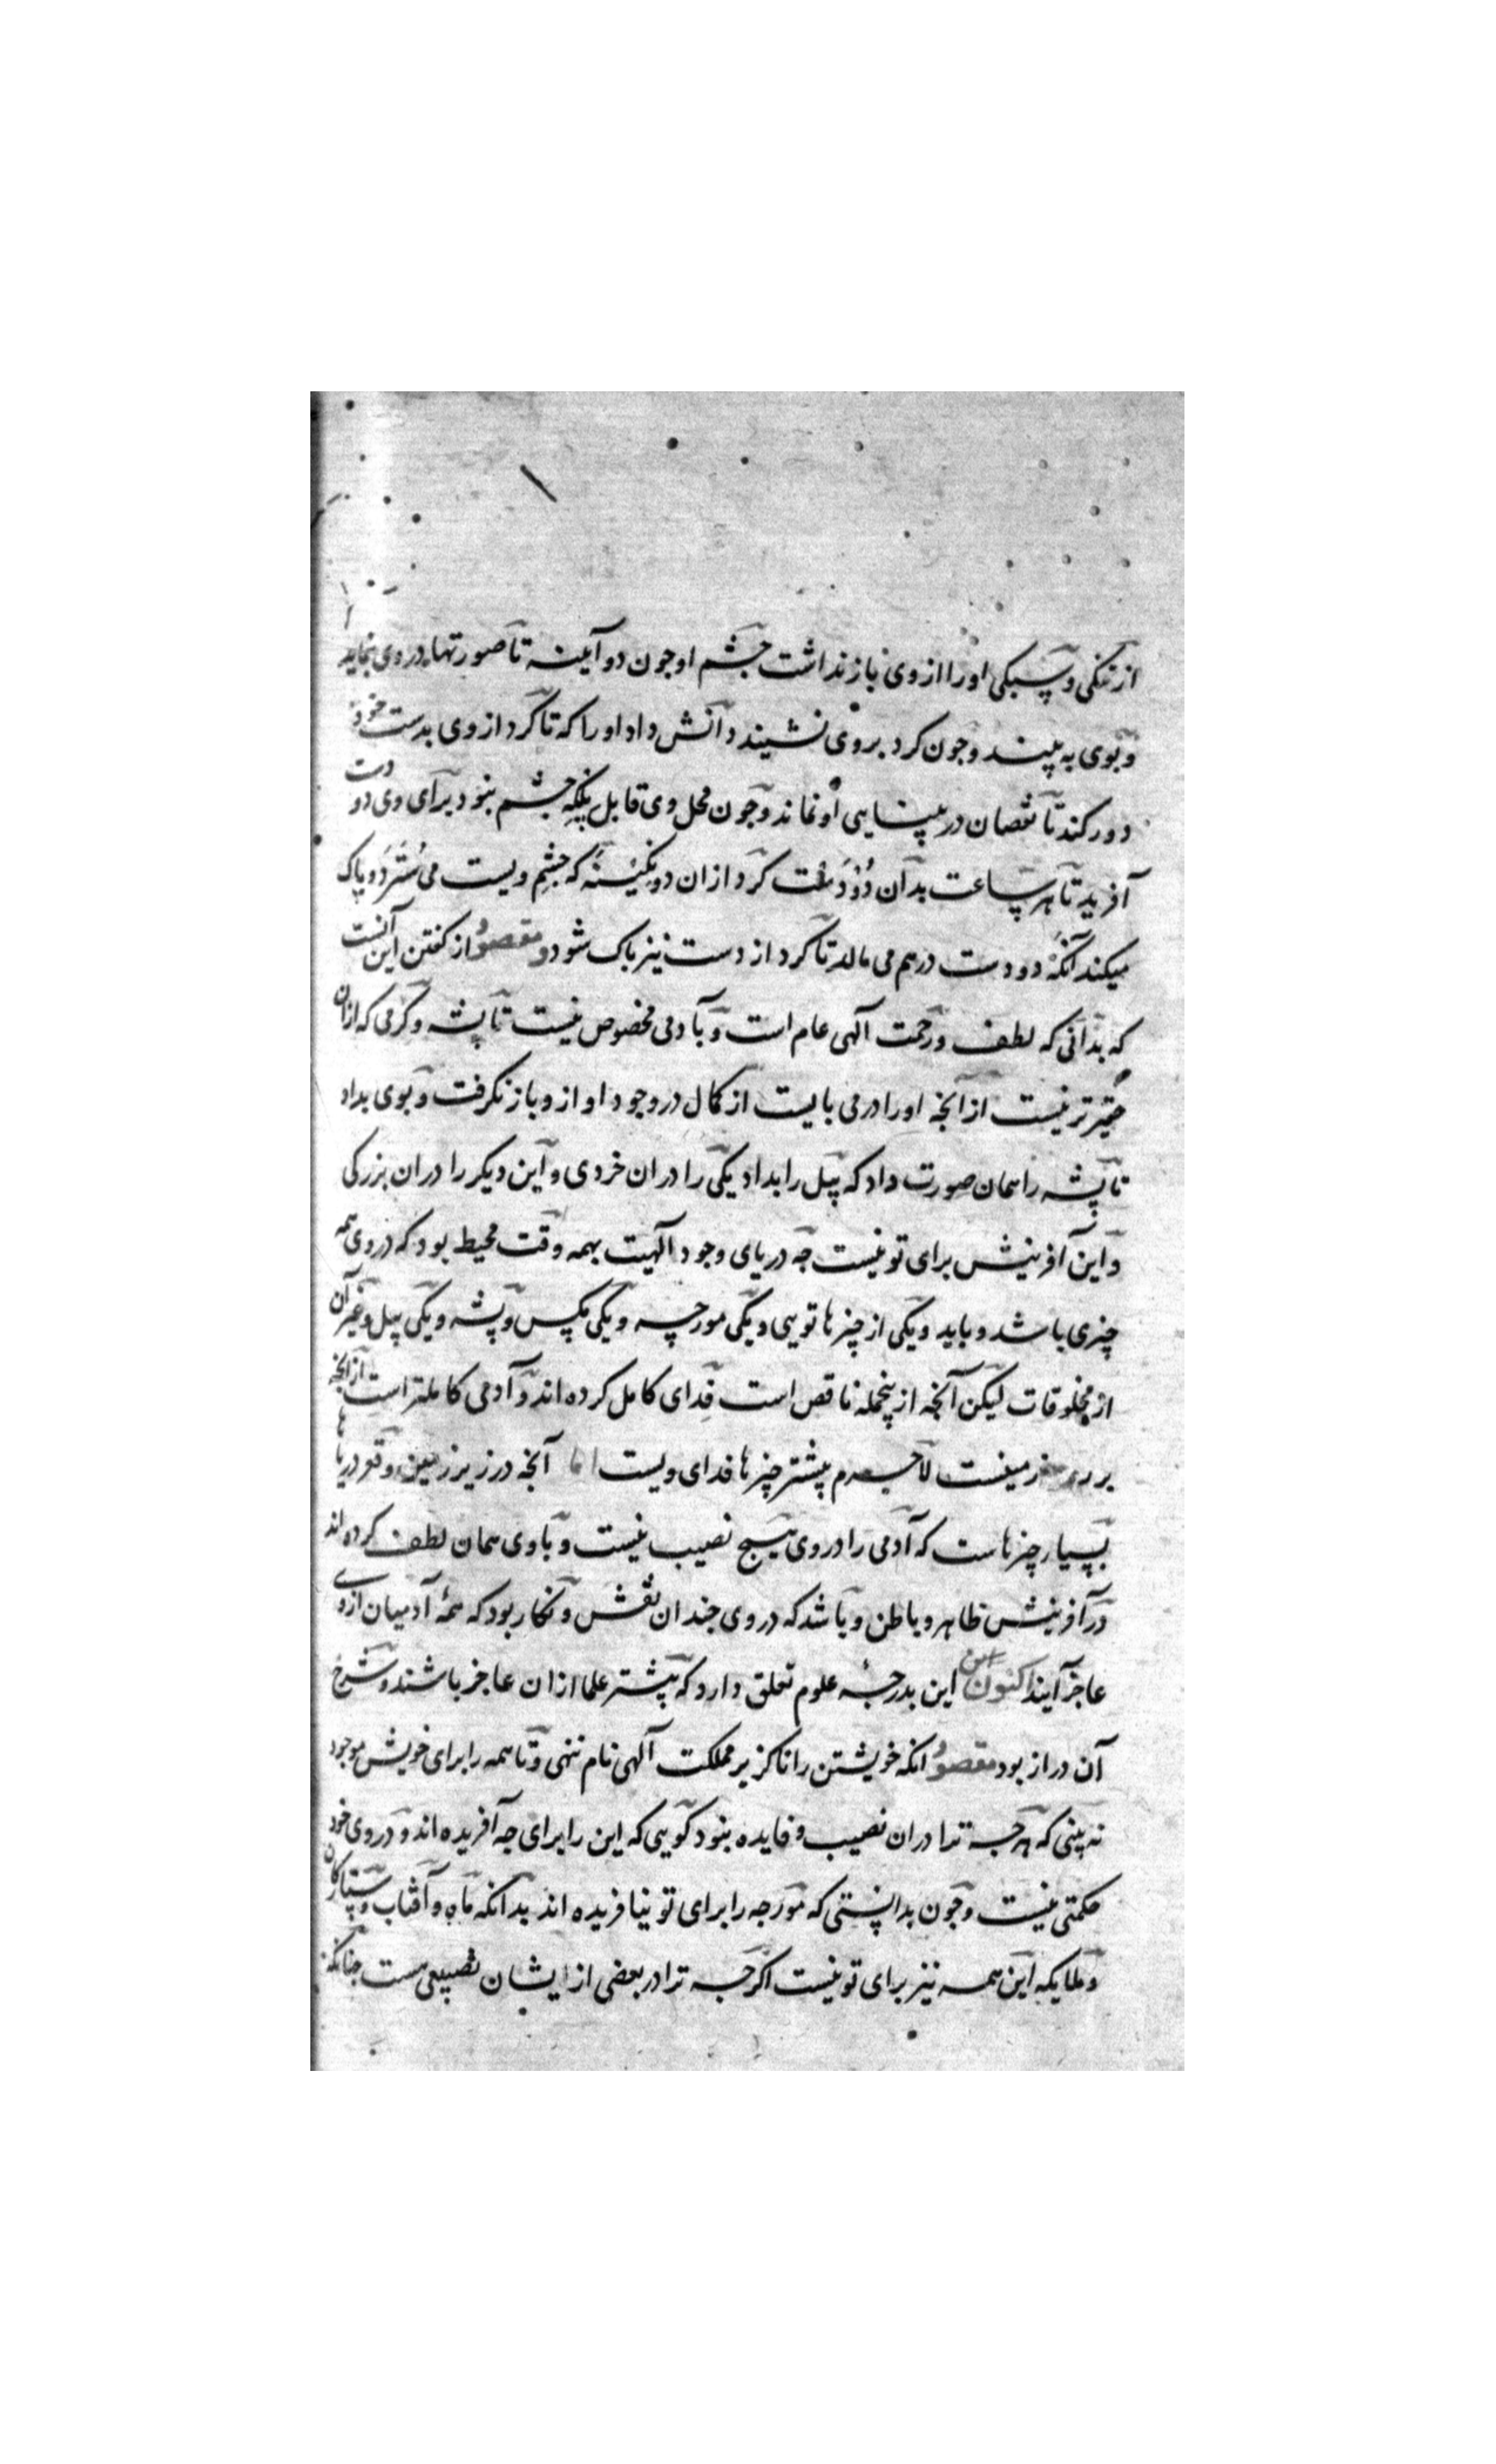 از تنکی و سبکی او را از وی باز نداشت جشم او جون دو آیینه تا صورتها در وی نماید
و بوی به بیند و جون کرد بروی نشیند دانش داد او را که تا کرد از وی بدست خود
دور کند تا نقصان در بینایی او نماند و جون محل وی قابل پلکه جشم نبود برای وی دو دست
آفرید تا هر ساعت بدآن دو دست کرد از ان دو نکینه که جشم ویست می سترد و پاک
میکند آنکه دو دست درهم می مالد تا کرد از دست نیز پاک شود و مقصود از کفتن این آنست
که بدانی که لطف و رحمت آلهی عام است و بآدمی مخصوص نیست تا پشه و کرمی که ازان
حقیرتر نیست از آنجه او را در می بایست از کمال در وجود او ازو باز نکرفت و بوی بداد
تا پشه را همان صورت داد که پیل را بداد یکی را دران خردی و این دیکر را دران بزرکی
و این آفرینش برای تو نیست جه دریای وجود آلهیت بهمه وقت محیط بود که در وی همه
چیزی باشد و باید و یکی از چیزها تویی و یکی مورچه و یکی مکس و پشه و یکی پیل و غیر آن
از مخلوقات لیکن آنجه از ینجمله ناقص است فدای کامل کرده اند و آدمی کاملتر است از آنجه
بر روی زمینست لاجرم بیشتر چیزها فدای ویست اما آنجه در زیر زمین و قعر دریاها
بسیار چیزهاست که آدمی را در وی هیچ نصیب نیست و با وی همان لطف کرده اند
در آفرینش ظاهر و باطن و باشد که در وی جندان نقش و نکار بود که همهٔ آدمیان از وی
عاجز آیند اکنون این بدرجهٔ علوم تعلق دارد که بیشتر علما ازان عاجز باشند و شرح
آن دراز بود مقصود انکه خویشتن را ناکزیر مملکت آلهی نام ننهی و تا همه را برای خویش موجود
نه بینی که هرجه ترا دران نصیب و فایده نبود کویی که این را برای جه آفریده اند و در وی خود
حکمتی نیست و جون بدانستی که مورجه را برای تو نیافریده اند بدانکه ماه و آفتاب و ستارکان
و ملایکه این همه نیز برای تو نیست اکرجه ترا در بعضی از ایشان نصیبی هست جنانکه